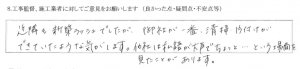 8.工事監督、施工業者に対してご意見をお願いします（良かった点・疑問点・不安点等）
近隣も新築ラッシュでしたが、御社が一番、清掃、片付けが
できていたような気がします。他社は私語が大声でちょっと…という場面を
見たことがあります。